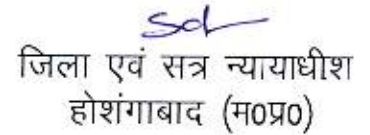 Sd
जिला एवं सत्र न्यायाधीश
होशंगाबाद (म0प्र0)